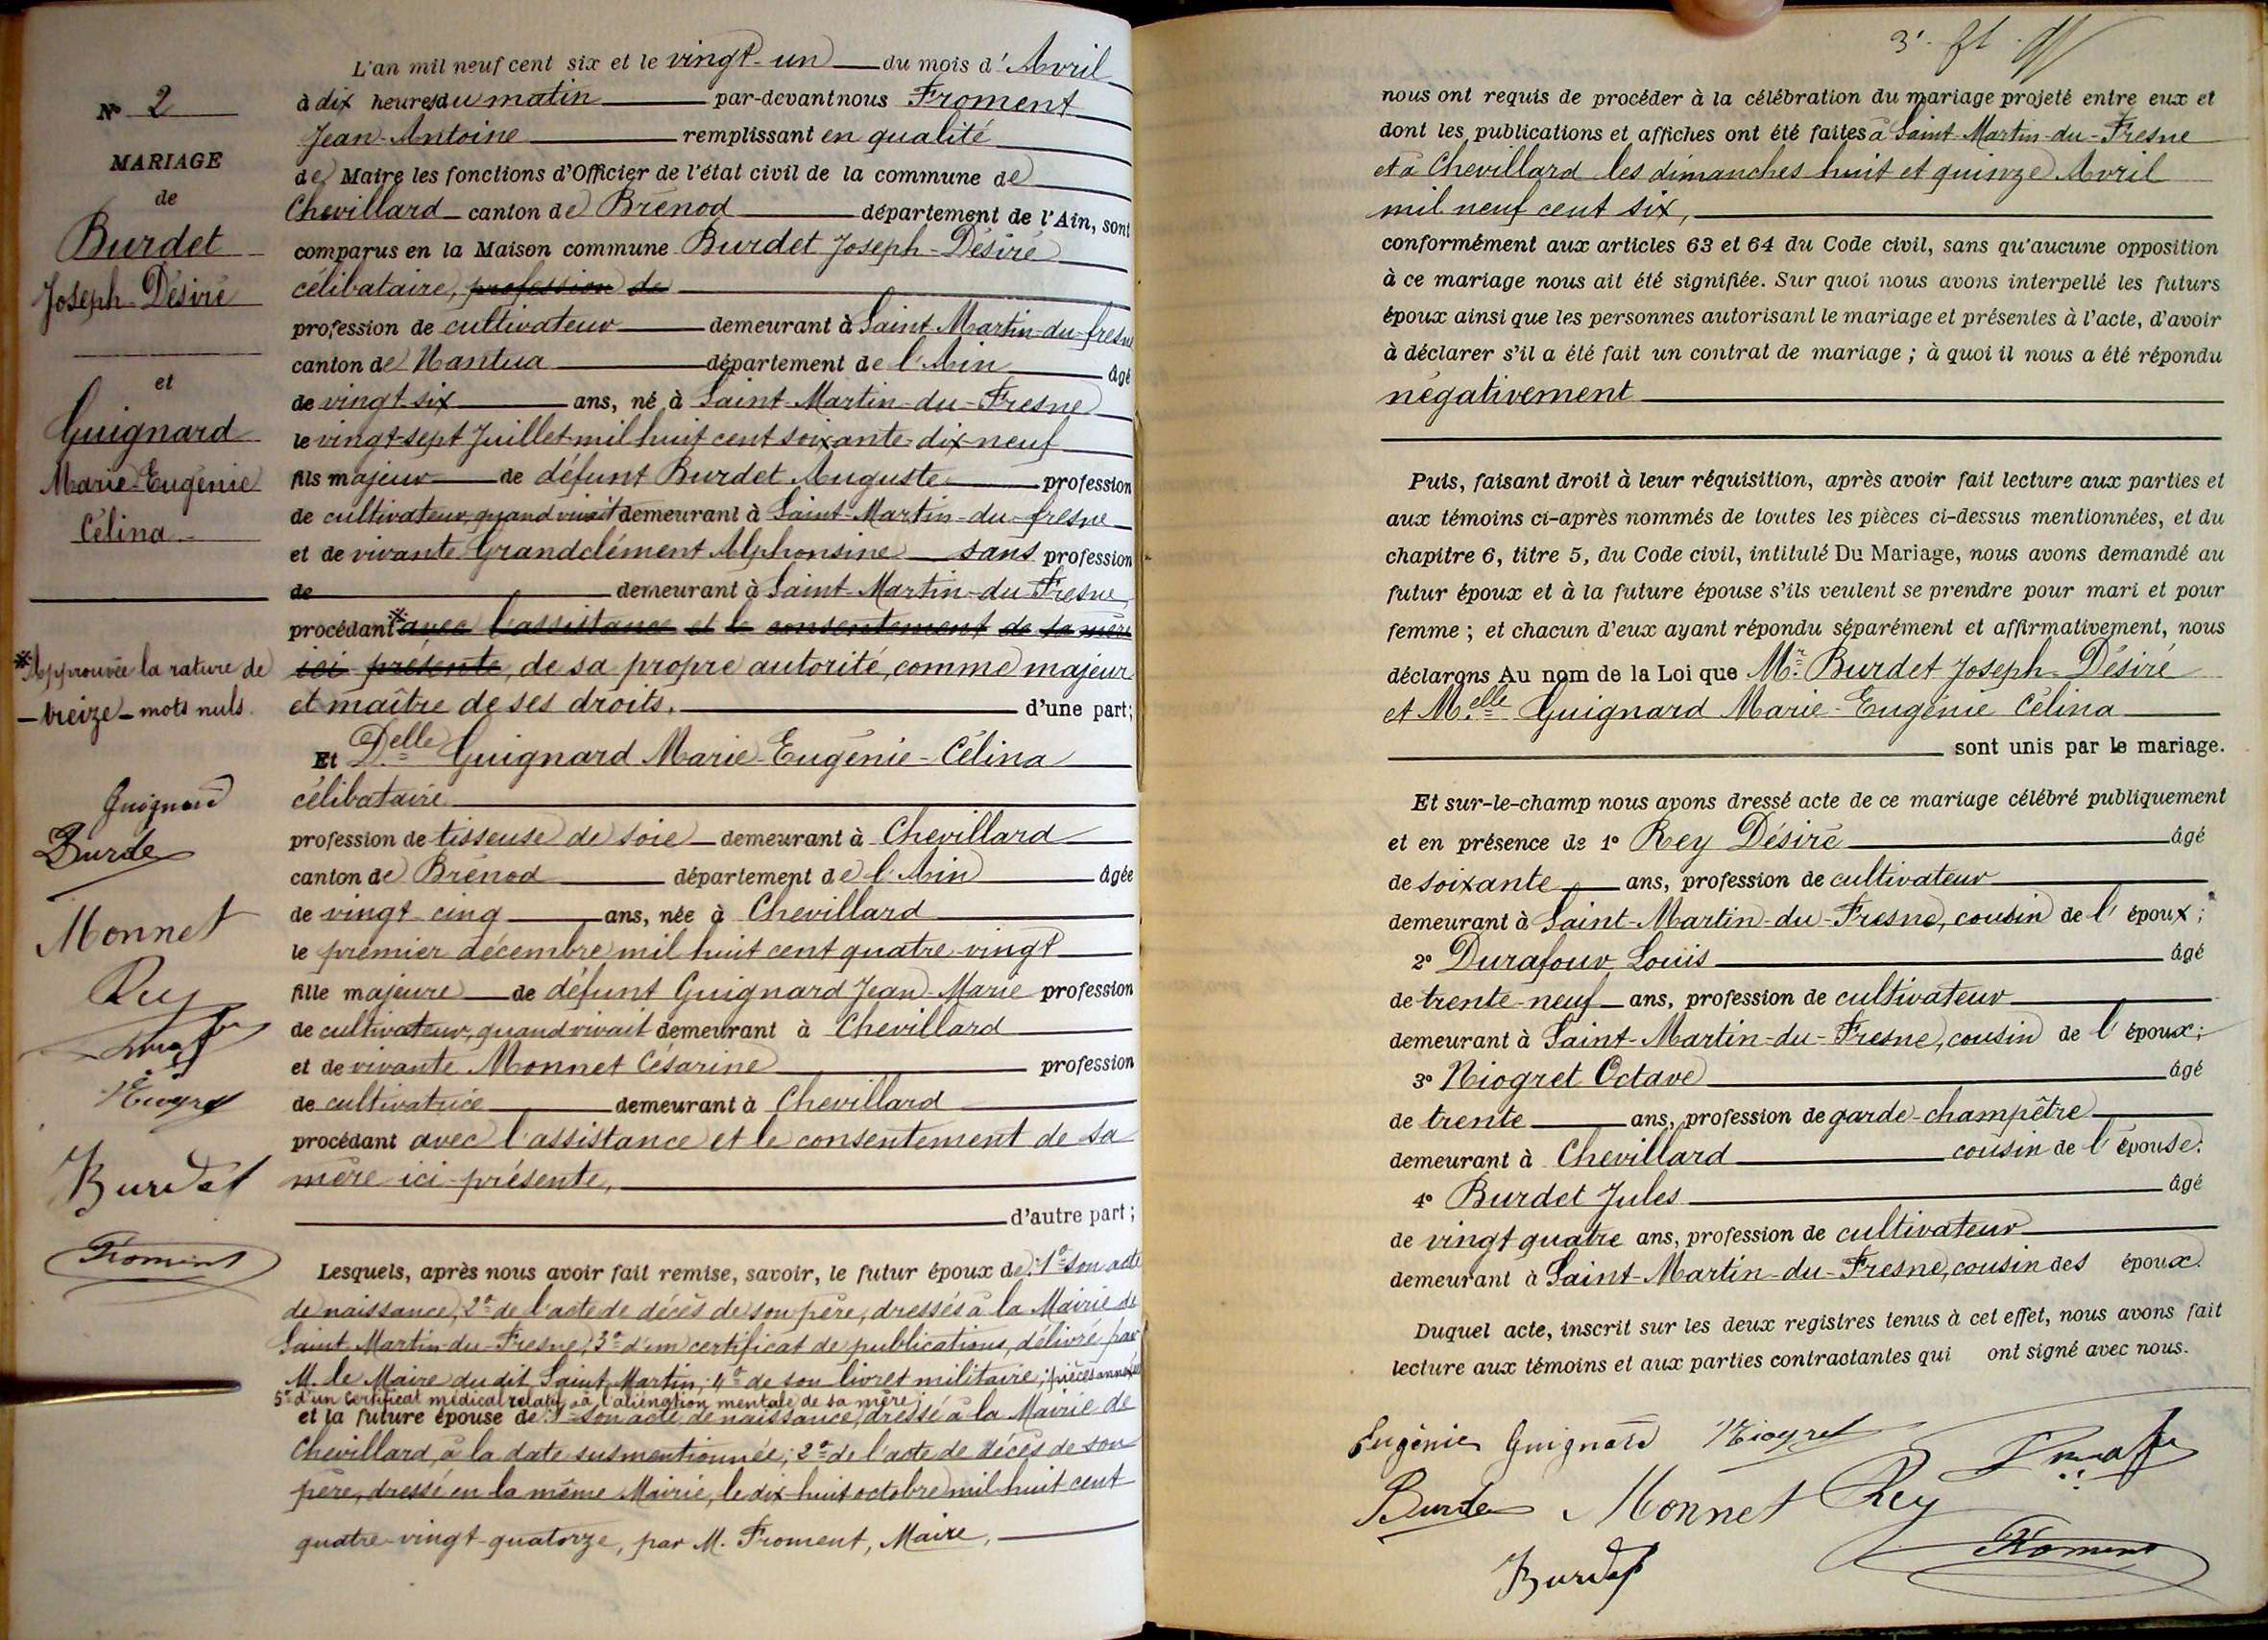 N° 2
MARIAGE
de
Burdet
Joseph-Désiré
et
Guignard
Marie-Eugénie
Célina
*Approuvée la rature de
- treize - mots nuls.
Guignard
Burde
Monnet
Rey
Niogret
Burdet
Froment
L'an mil neuf cent six et le vingt-un du mois d'Avril
à dix heures du matin par-devant nous Froment
Jean-Antoine remplissant en qualité
de Maire les fonctions d'Officier de l'état civil de la commune de
Chevillard canton de Brénod département de l'Ain, sont
comparus en la Maison commune Burdet Joseph-Désiré
célibataire, profession de
profession de cultivateur demeurant à Saint-Martin-du-fresne
canton de Nantua département de l'Ain âgé
de vingt-six ans, né à Saint-Martin-du-Fresne
le vingt-sept Juillet mil huit cent soixante-dix-neuf
fils majeur de défunt Burdet Auguste profession
de cultivateur, quand vivait demeurant à Saint-Martin-du-fresne
et de vivante Grandclément Alphonsine sans profession
de demeurant à Saint-Martin-du Fresne,
procédant *avec l'assistance et le consentement de sa mère
ici présente, de sa propre autorité, comme majeur
et maître de ses droits. d'une part;
Et Delle Guignard Marie-Eugénie-Célina
célibataire
profession de tisseuse de soie demeurant à Chevillard
canton de Brénod département de l'Ain âgée
de vingt-cinq ans, née à Chevillard
le premier décembre mil huit cent quatre-vingt
fille majeure de défunt Guignard Jean-Marie profession
de cultivateur, quand vivait demeurant à Chevillard
et de vivante Monnet Césarine profession
de cultivatrice demeurant à Chevillard
procédant avec l'assistance et le consentement de sa
mère ici présente,
d'autre part;
Lesquels, après nous avoir fait remise, savoir, le futur époux de: 1° son acte
de naissance, 2° de l'acte de décès de son père, dressés à la Mairie de
Saint Martin-du-Fresne, 3° d'un certificat de publications, délivré par
M. le Maire du dit Saint Martin; 4° de son livret militaire; pièces annexées
5° d'un certificat médical relatif à l'aliénation mentale de sa mère;
et la future épouse de 1° son acte de naissance, dressé à la Mairie de
Chevillard, à la date susmentionnée; 2° de l'acte de décès de son
père, dressé en la même Mairie, le dix-huit octobre mil huit cent
quatre-vingt-quatorze, par M. Froment, Maire,
nous ont requis de procéder à la célébration du mariage projeté entre eux et
dont les publications et affiches ont été faites à Saint-Martin-du-Fresne
et à Chevillard les dimanches huit et quinze Avril
mil neuf cent six,
conformément aux articles 63 et 64 du Code civil, sans qu'aucune opposition
à ce mariage nous ait été signifiée. Sur quoi nous avons interpellé les futurs
époux ainsi que les personnes autorisant le mariage et présentes à l'acte, d'avoir
à déclarer s'il a été fait un contrat de mariage; à quoi il nous a été répondu
négativement
Puis, faisant droit à leur réquisition, après avoir fait lecture aux parties et
aux témoins ci-après nommés de toutes les pièces ci-dessus mentionnées, et du
chapitre 6, titre 5, du Code civil, intitulé Du Mariage, nous avons demandé au
futur époux et à la future épouse s'ils veulent se prendre pour mari et pour
femme; et chacun d'eux ayant répondu séparément et affirmativement, nous
déclarons Au nom de la Loi que Mr. Burdet Joseph-Désiré
et Melle Guignard Marie-Eugénie Célina
sont unis par le mariage.
Et sur-le-champ nous avons dressé acte de ce mariage célébré publiquement
et en présence de 1° Rey Désiré âgé
de soixante ans, profession de cultivateur
demeurant à Saint-Martin-du-Fresne, cousin de l'époux;
2° Durafour Louis âgé
de trente-neuf ans, profession de cultivateur
demeurant à Saint-Martin-du-Fresne, cousin de l'époux;
3° Niogret Octave âgé
de trente ans, profession de garde-champêtre
demeurant à Chevillard cousin de l'épouse.
4° Burdet Jules âgé
de vingt quatre ans, profession de cultivateur
demeurant à Saint-Martin-du-Fresne, cousin des époux.
Duquel acte, inscrit sur les deux registres tenus à cet effet, nous avons fait
lecture aux témoins et aux parties contractantes qui ont signé avec nous.
Eugénie Guignard Niogret
Burde Monnet Rey
Burdet Froment